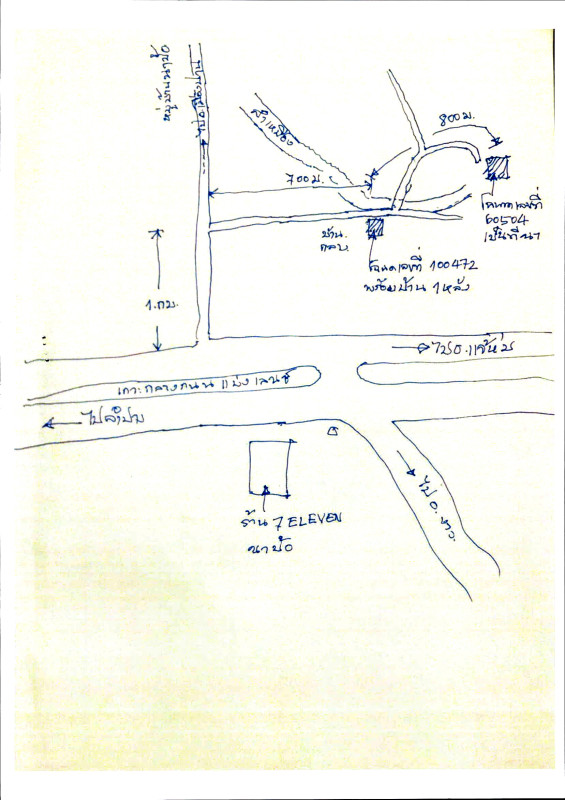 หมู่บ้านนาป้อ
ไป อ.เมืองปาน
ลำเหมือง
800 ม.
700 ม.
โฉนดเลขที่
60504
เป็นที่นา
บ้าน
โฉนดเลขที่ 100472
พร้อมบ้าน 1 หลัง
1 กม.
ไป อ.แจ้ห่ม
เกาะกลางถนนแบ่งเลนซ์
ไปลำปาง
ร้าน 7 ELEVEN
นาป้อ